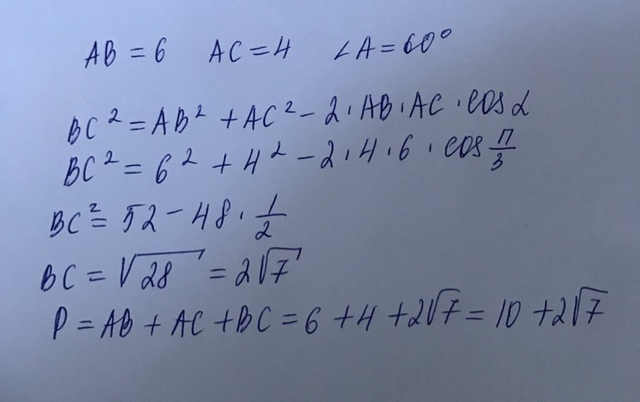 AB = 6 AC = 4 ∠A = 60°
BC² = AB² + AC² - 2 · AB · AC · cos α
BC² = 6² + 4² - 2 · 4 · 6 · cos π/3
BC² = 52 - 48 · 1/2
BC = √28 = 2√7
P = AB + AC + BC = 6 + 4 + 2√7 = 10 + 2√7